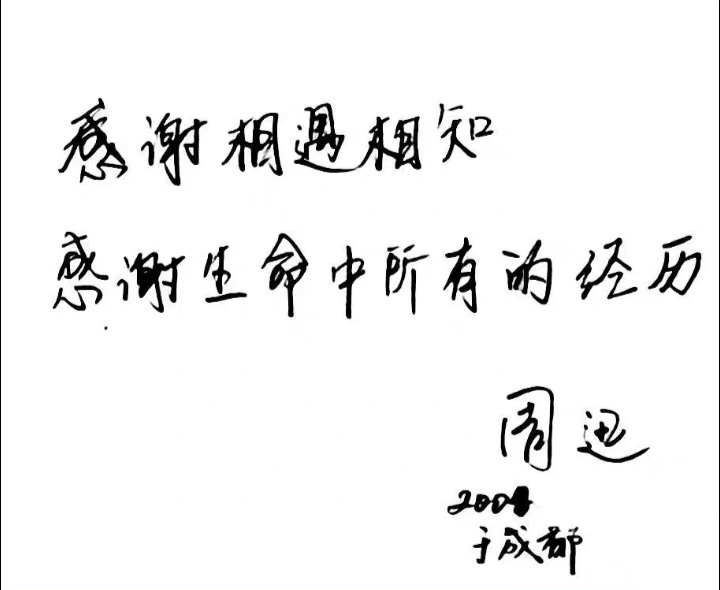 感谢相遇相知
感谢生命中所有的经历
周迅
于成都